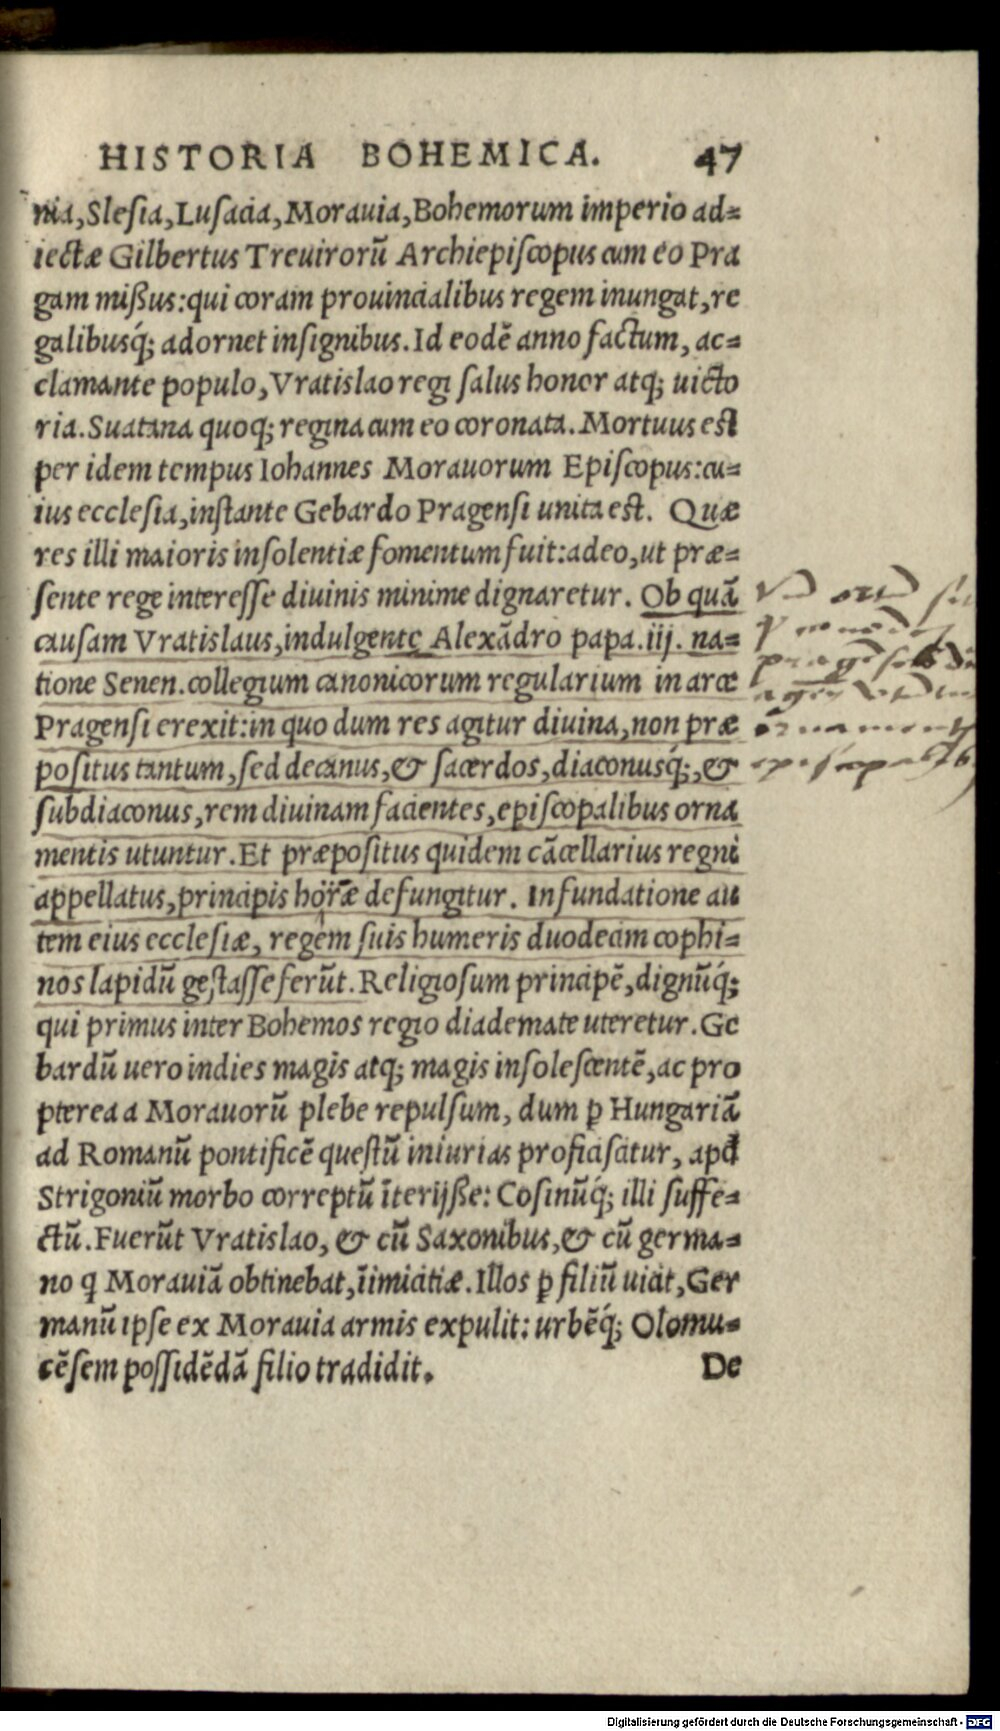 HISTORIA BOHEMICA. 47
nia, Slesia, Lusacia, Morauia, Bohemorum imperio ad=
iectæ Gilbertus Treuirorũ Archiepiscopus cum eo Pra
gam mißus: qui coram prouincialibus regem inungat, re
galibusq́; adornet insignibus. Id eodẽ anno factum, ac=
clamante populo, Vratislao regi salus honor atq; uicto
ria. Suatana quoq; regina cum eo coronata. Mortuus est
per idem tempus Iohannes Morauorum Episcopus: cu=
ius ecclesia, instante Gebardo Pragensi unita est. Quæ
res illi maioris insolentiæ fomentum fuit: adeo, ut præ=
sente rege interesse diuinis minime dignaretur. Ob quã
causam Vratislaus, indulgente Alexãdro papa .iij. na=
tione Senen. collegium canonicorum regularium in arce
Pragensi erexit: in quo dum res agitur diuina, non præ
positus tantum, sed decanus, & sacerdos, diaconusq́;, &
subdiaconus, rem diuinam facientes, episcopalibus orna
mentis utuntur. Et præpositus quidem cãcellarius regni
appellatus, principis horæ defungitur. In fundatione au
tem eius ecclesiæ, regem suis humeris duodecim cophi=
nos lapidũ gestasse ferũt. Religiosum principẽ, dignũq́;
qui primus inter Bohemos regio diademate uteretur. Ge
bardũ uero indies magis atq; magis insolescentẽ, ac pro
pterea a Morauorũ plebe repulsum, dum ꝑ Hungariã
ad Romanũ pontificẽ questũ iniurias proficiscitur, apd
Strigoniũ morbo correptũ ĩterijße: Cosinũq́; illi suffe=
ctũ. Fuerũt Vratislao, & cũ Saxonibus, & cũ germa=
no q Morauiã obtinebat, ĩimicitiæ. Illos ꝑ filiũ uicit, Ger
manũ ipse ex Morauia armis expulit: urbẽq́; Olomu=
cẽsem possidẽdã filio tradidit. De
Digitalisierung gefördert durch die Deutsche Forschungsgemeinschaft - DFG